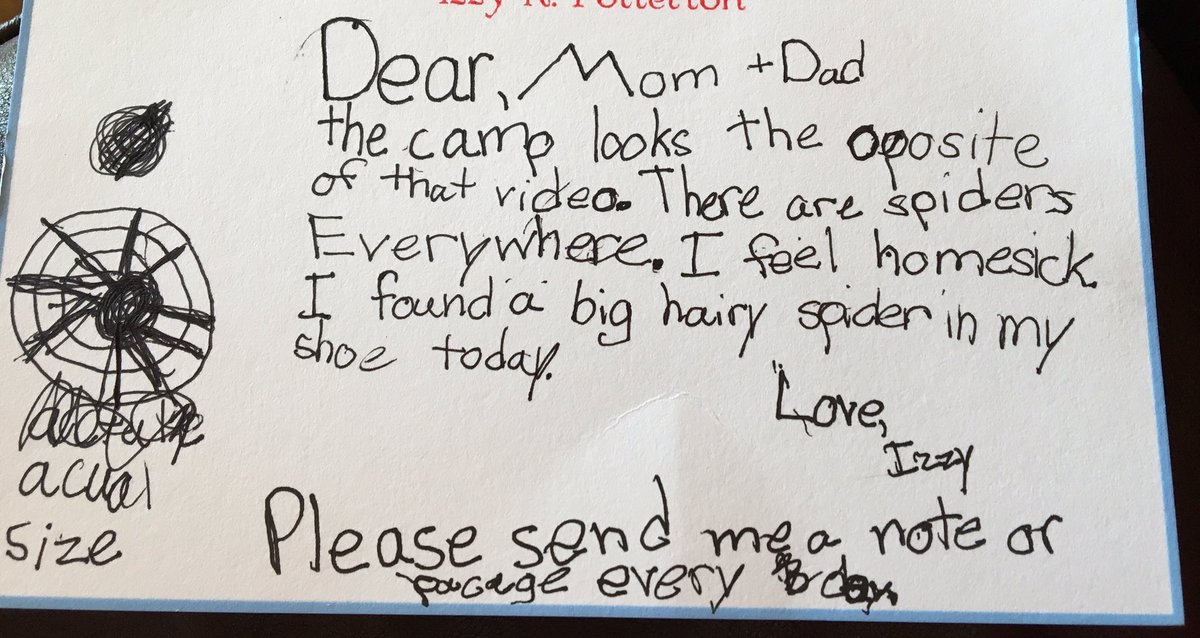 Izzy R. Potterton
Dear, Mom + Dad
the camp looks the oposite
of that video. There are spiders
Everywhere. I feel homesick.
I found a big hairy spider in my
shoe today.
Love,
Izzy
acual
size
Please send me a note or
pacage every day